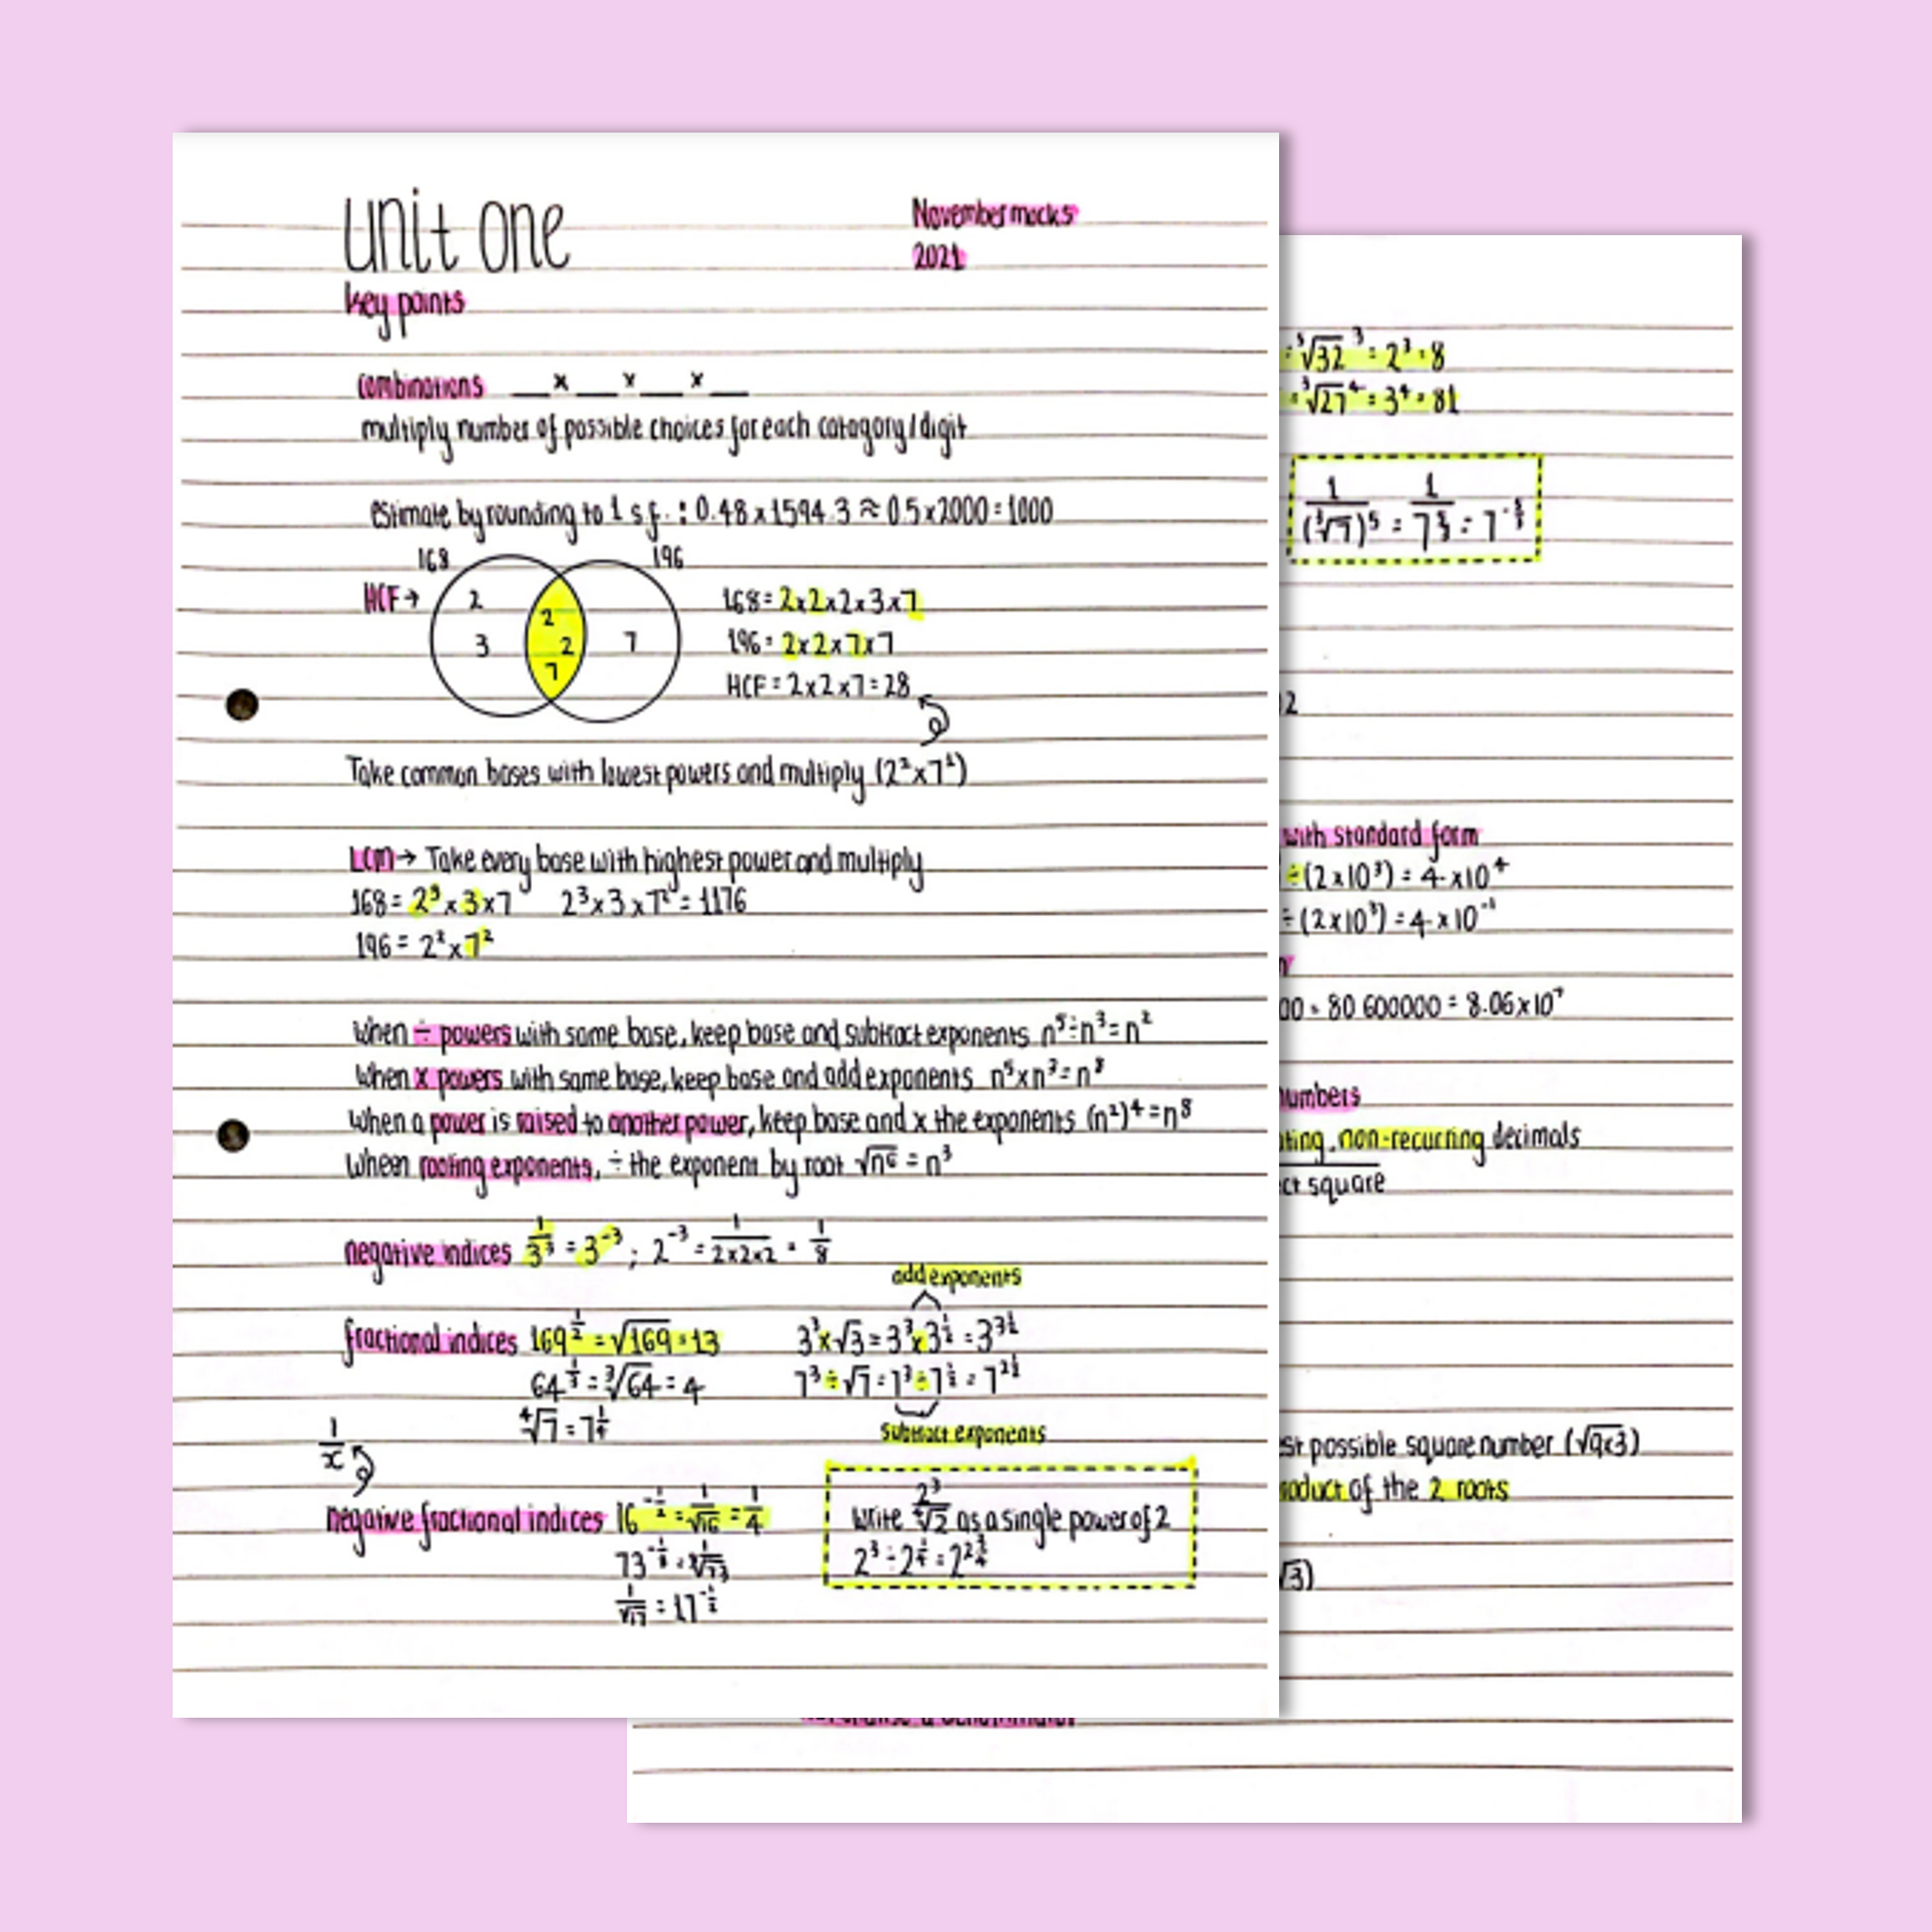 unit one
November mocks
2021
key points
combinations __x__x__x__
multiply number of possible choices for each catagory/digit
estimate by rounding to 1 s.f. : 0.48 x 1594.3 ≈ 0.5 x 2000 = 1000
168 196
HCF → 2 3 2 2 7 7
168 = 2x2x2x3x7
196 = 2x2x7x7
HCF = 2x2x7 = 28
Take common bases with lowest powers and multiply (2²x7¹)
LCM → Take every base with highest power and multiply
168 = 2³ x 3 x 7 2³ x 3 x 7² = 1176
196 = 2² x 7²
When ÷ powers with same base, keep base and subtract exponents n⁵÷n³=n²
When x powers with same base, keep base and add exponents n⁵xn³=n⁸
When a power is raised to another power, keep base and x the exponents (n²)⁴=n⁸
When rooting exponents, ÷ the exponent by root √n⁶ = n³
negative indices 1/3³ = 3⁻³ ; 2⁻³ = 1/2x2x2 = 1/8
add exponents
fractional indices 169^1/2 = √169 = 13 3³x√3 = 3³x3^1/2 = 3^3 1/2
64^1/3 = ³√64 = 4 7³÷√7 = 7³÷7^1/2 = 7^2 1/2
⁴√7 = 7^1/4
subtract exponents
1/x
negative fractional indices 16^-1/2 = 1/√16 = 1/4
1/√17 = 17^-1/2
Write 2³/⁴√2 as a single power of 2
2³ ÷ 2^1/4 = 2^2 3/4
= ⁵√32³ = 2³ = 8
= ³√27⁴ = 3⁴ = 81
1/(³√7)⁵ = 1/7^5/3 = 7^-5/3
2
with standard form
÷ (2x10³) = 4 x 10⁴
÷ (2x10³) = 4 x 10⁻¹
00 = 80 600000 = 8.06x10⁷
numbers
ting, non-recurring decimals
ct square
st possible square number (√9x3)
oduct of the 2 roots
√3)